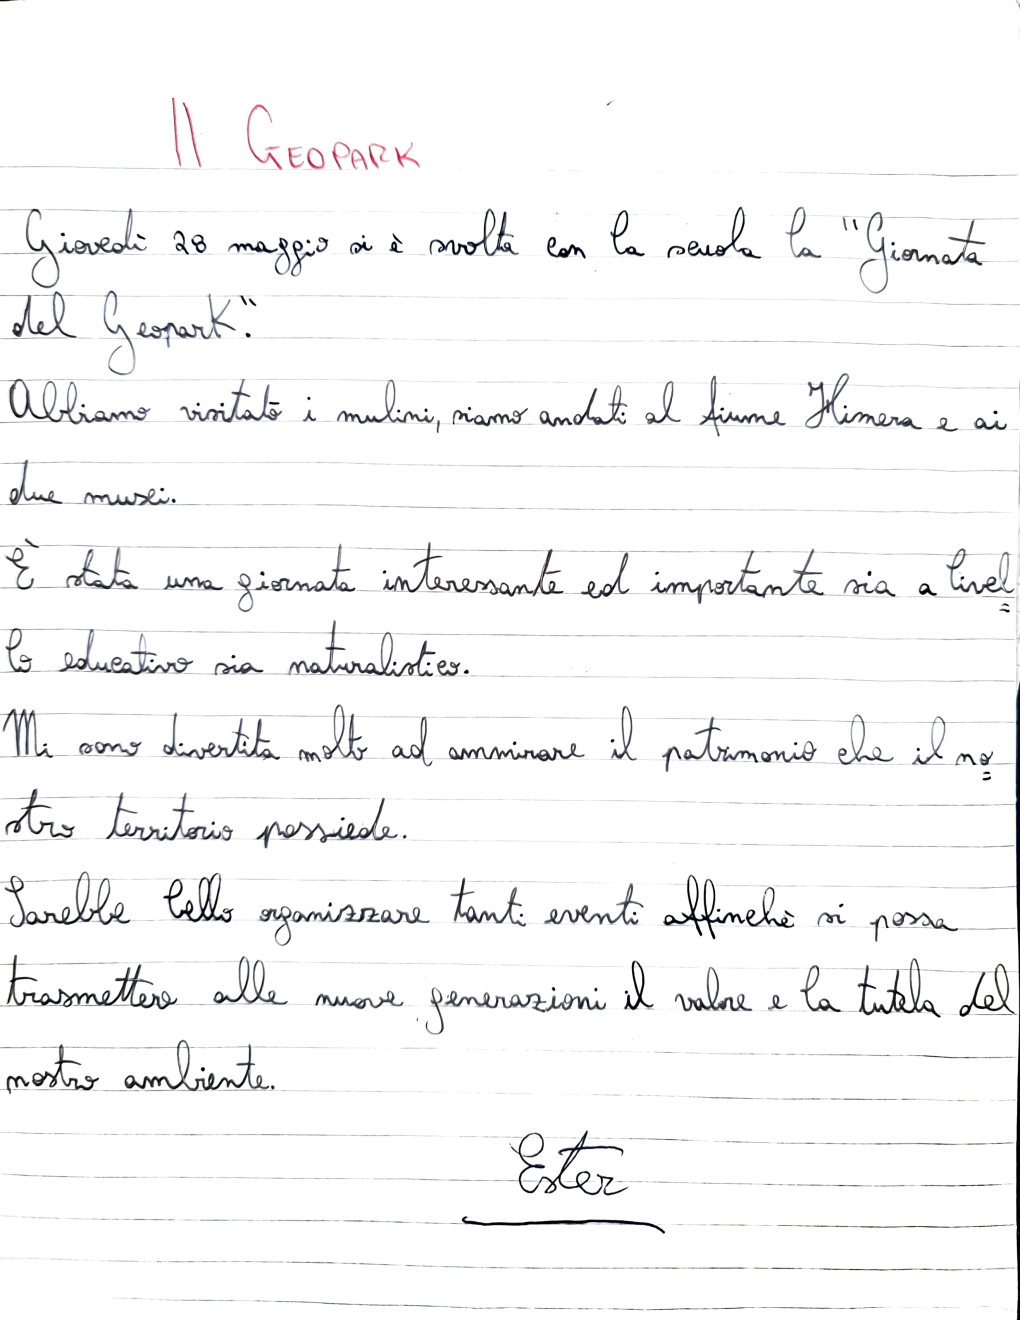 Il GEOPARK
Giovedì 28 maggio si è svolta con la scuola la "Giornata
del Geopark".
Abbiamo visitato i mulini, siamo andati al fiume Himera e ai
due musei.
È stata una giornata interessante ed importante sia a livel=
lo educativo sia naturalistico.
Mi sono divertita molto ad ammirare il patrimonio che il no=
stro territorio possiede.
Sarebbe bello organizzare tanti eventi affinchè si possa
trasmettere alle nuove generazioni il valore e la tutela del
nostro ambiente.
Ester